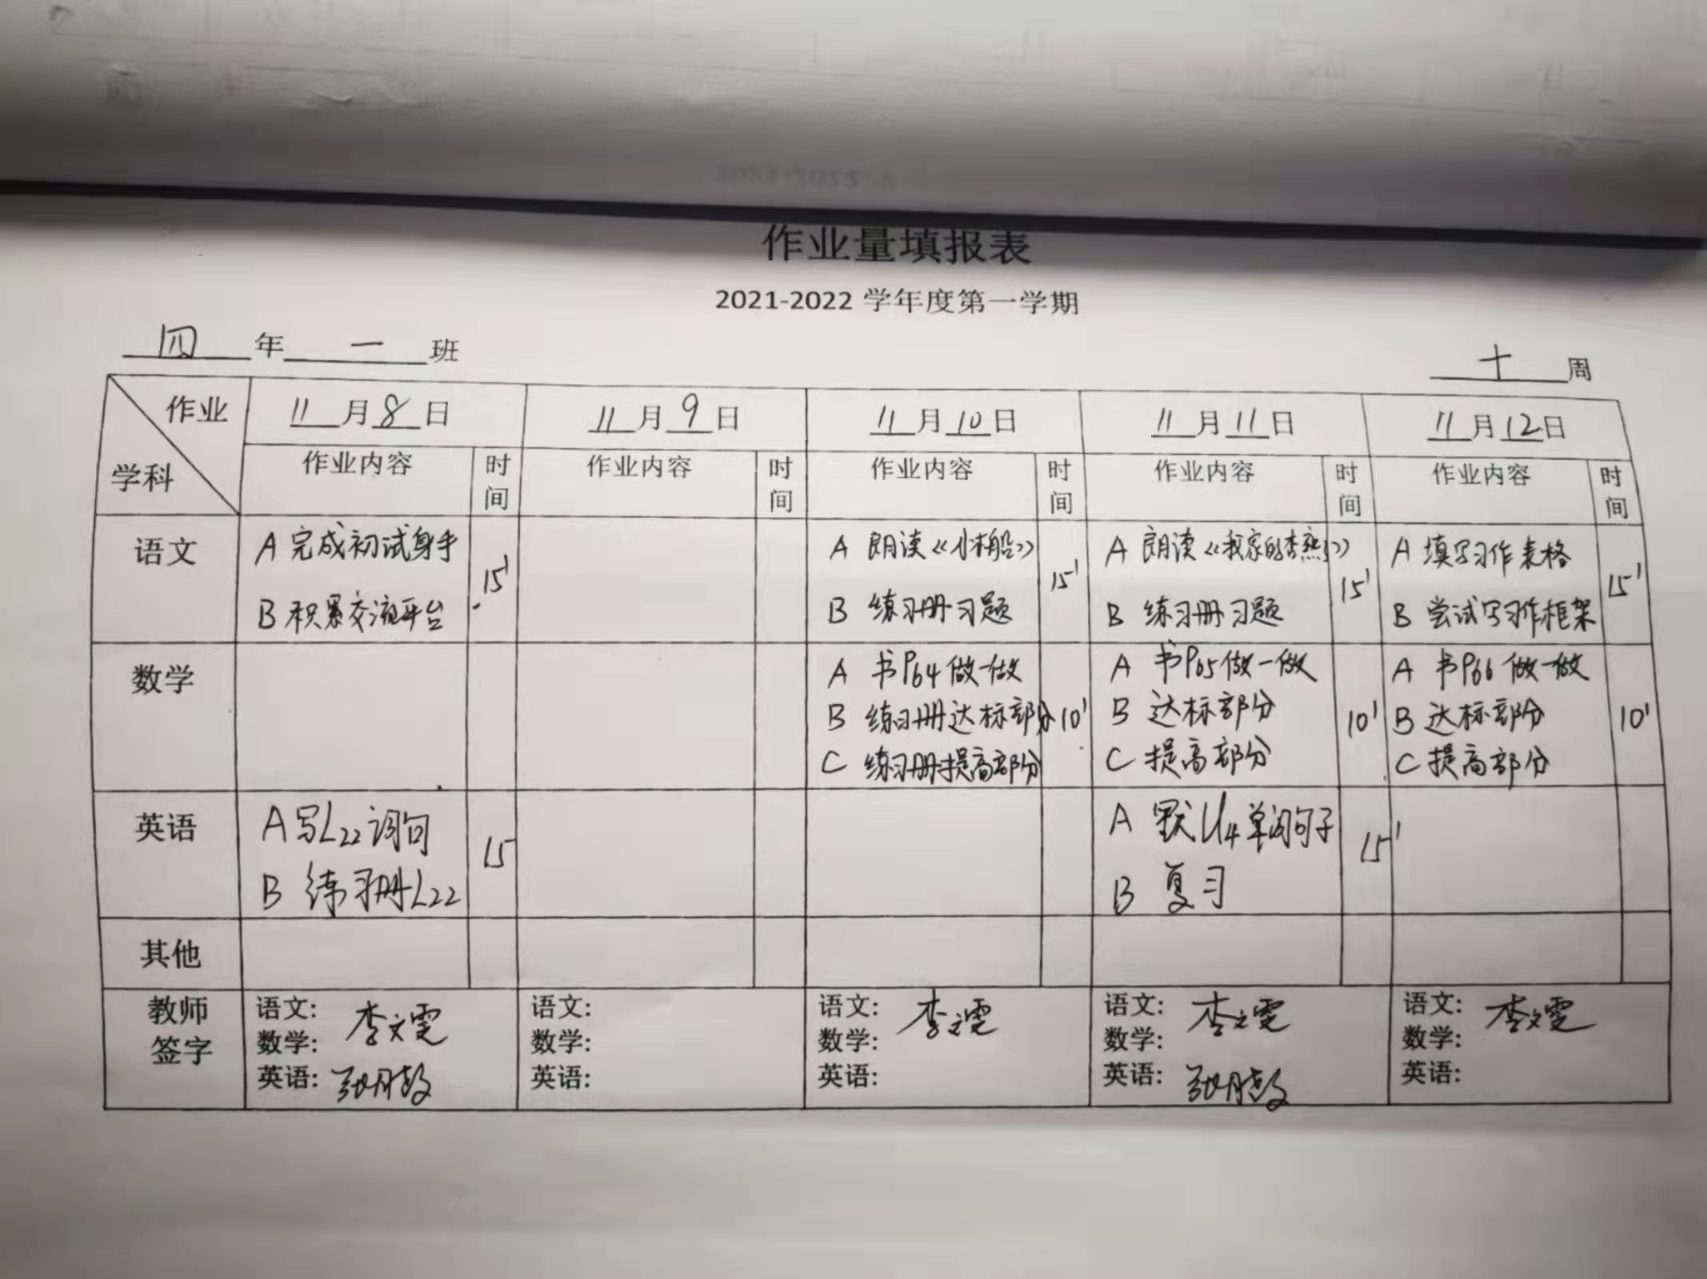 作业量填报表
2021-2022 学年度第一学期
四 年 一 班
十 周
作业 学科 11月8日 11月9日 11月10日 11月11日 11月12日
作业内容 时间 作业内容 时间 作业内容 时间 作业内容 时间 作业内容 时间
语文
A 完成初试身手
B 积累交流平台
15'
A 朗读《小木船》
B 练习册习题
15'
A 朗读《我家的杏熟了》
B 练习册习题
15'
A 填写习作表格
B 尝试写习作框架
15'
数学
A 书P64做一做
B 练习册达标部分
C 练习册提高部分
10'
A 书P65做一做
B 达标部分
C 提高部分
10'
A 书P66做一做
B 达标部分
C 提高部分
10'
英语
A 写L22词句
B 练习册L22
15
A 默U4单词句子
B 复习
15'
其他
教师签字
语文: 李文雯
数学:
英语:
语文:
数学:
英语:
语文: 李文雯
数学:
英语:
语文: 李文雯
数学:
英语:
语文: 李文雯
数学:
英语: